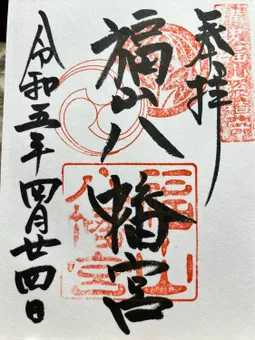 奉拝
福山八幡宮
令和五年四月廿四日
八幡宮